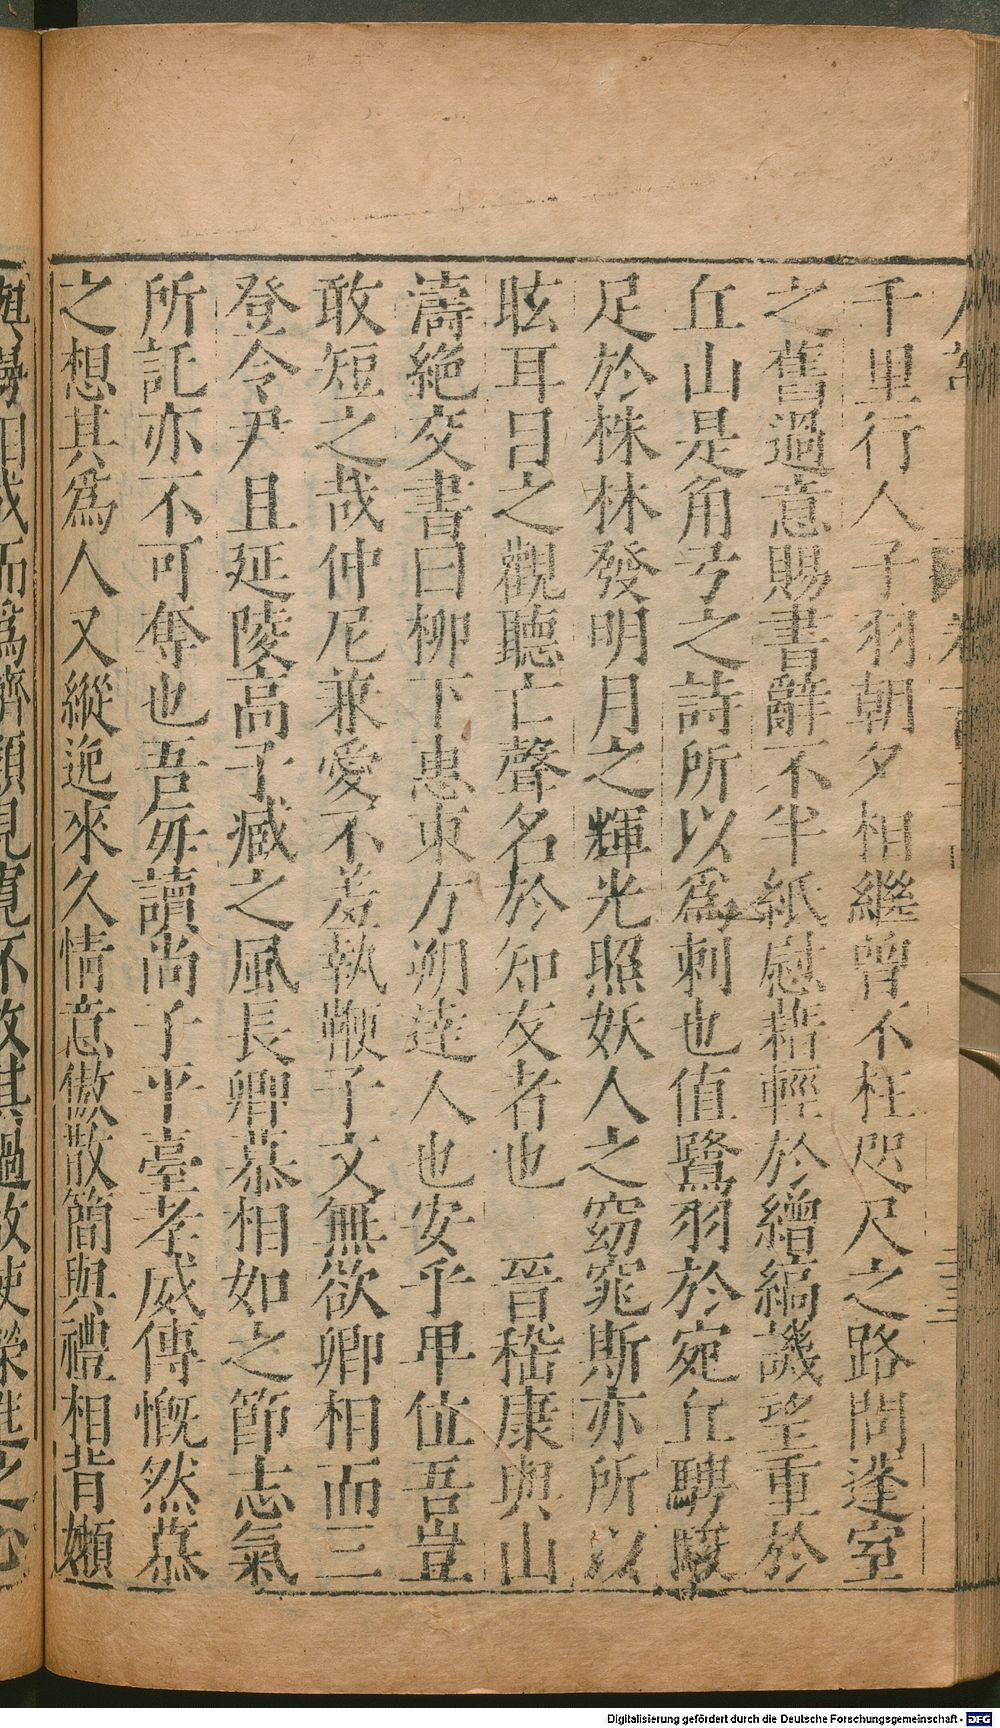 千里行人子羽朝夕相繼曾不枉咫尺之路問蓬室
之舊過意賜書辭不半紙慰藉輕於繒縞譏望重於
丘山是角弓之詩所以爲刺也值鷺羽於宛丘騁駿
足於株林發明月之輝光照妖人之窈窕斯亦所以
眩耳目之觀聽亡聲名於知友者也　晉嵇康與山
濤絕交書曰柳下惠東方朔達人也安乎卑位吾豈
敢短之哉仲尼兼愛不羞執鞭子文無欲卿相而三
登令尹且延陵高子臧之風長卿慕相如之節志氣
所託亦不可奪也吾每讀尚子平臺孝威傳慨然慕
之想其爲人又縱逸來久情意傲散簡與禮相背嬾
與慢相成而爲儕類見寬不攻其過故使榮進之心
Digitalisierung gefördert durch die Deutsche Forschungsgemeinschaft - DFG